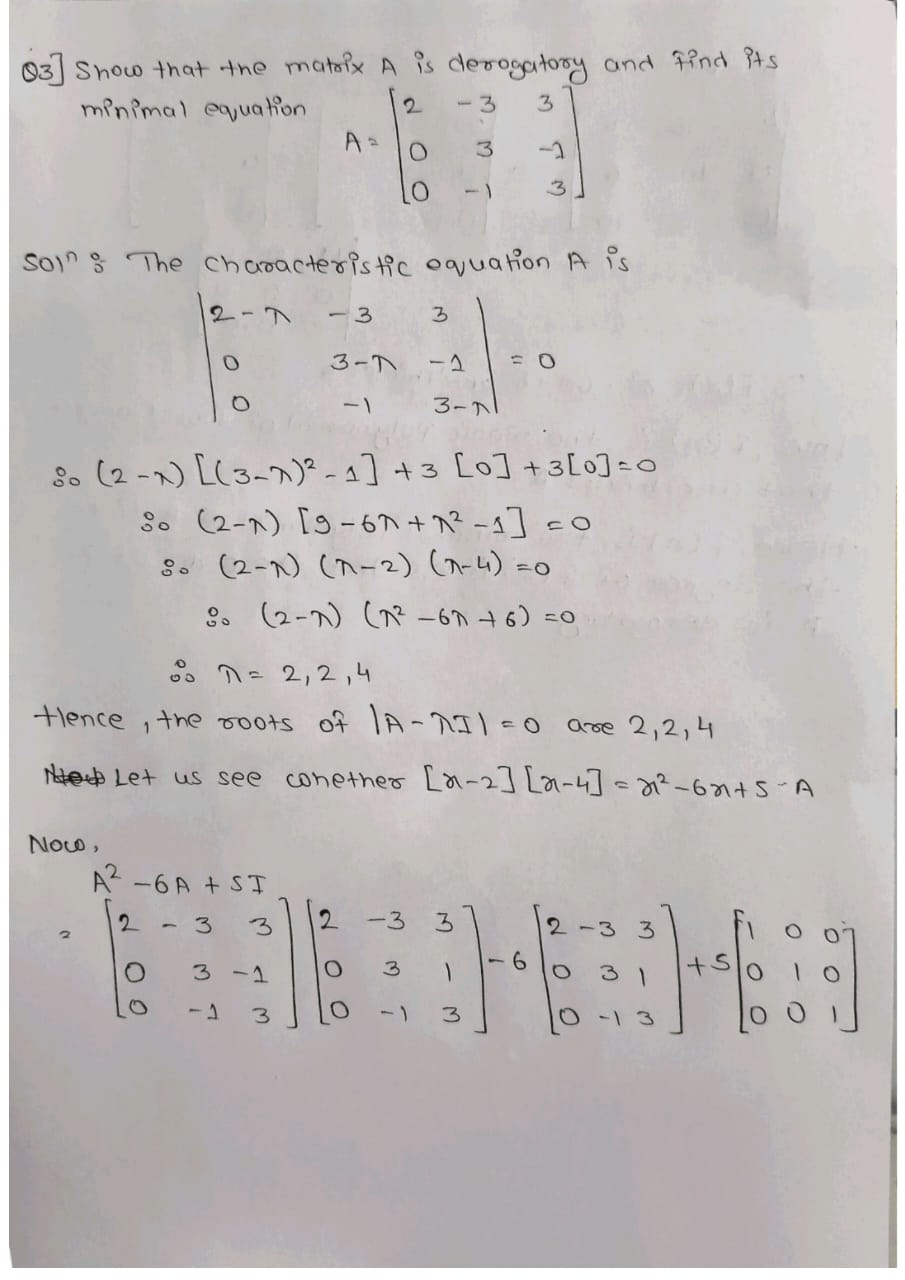 Q3] Show that the matrix A is derogatory and find its
minimal equation
A = [2 -3 3
0 3 -1
0 -1 3]
Solⁿ : The characteristic equation A is
|2-λ -3 3
0 3-λ -1
0 -1 3-λ| = 0
∴ (2-λ) [(3-λ)² - 1] + 3 [0] + 3[0] = 0
∴ (2-λ) [9 - 6λ + λ² - 1] = 0
∴ (2-λ) (λ-2) (λ-4) = 0
∴ (2-λ) (λ² - 6λ + 6) = 0
∴ λ = 2, 2, 4
Hence, the roots of |A - λI| = 0 are 2, 2, 4
Let us see whether [x-2] [x-4] = x² - 6x + 5 - A
Now,
A² - 6A + 5I
= [2 -3 3] [2 -3 3] - 6 [2 -3 3] + 5 [1 0 0]
[0 3 -1] [0 3 1] [0 3 1] [0 1 0]
[0 -1 3] [0 -1 3] [0 -1 3] [0 0 1]